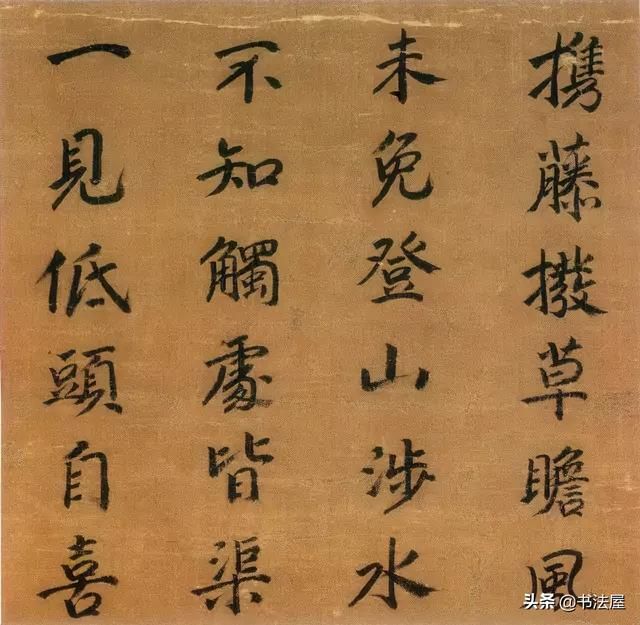 携藤撥草瞻風
未免登山涉水
不知觸處皆渠
一見低頭自喜
头条 @书法屋